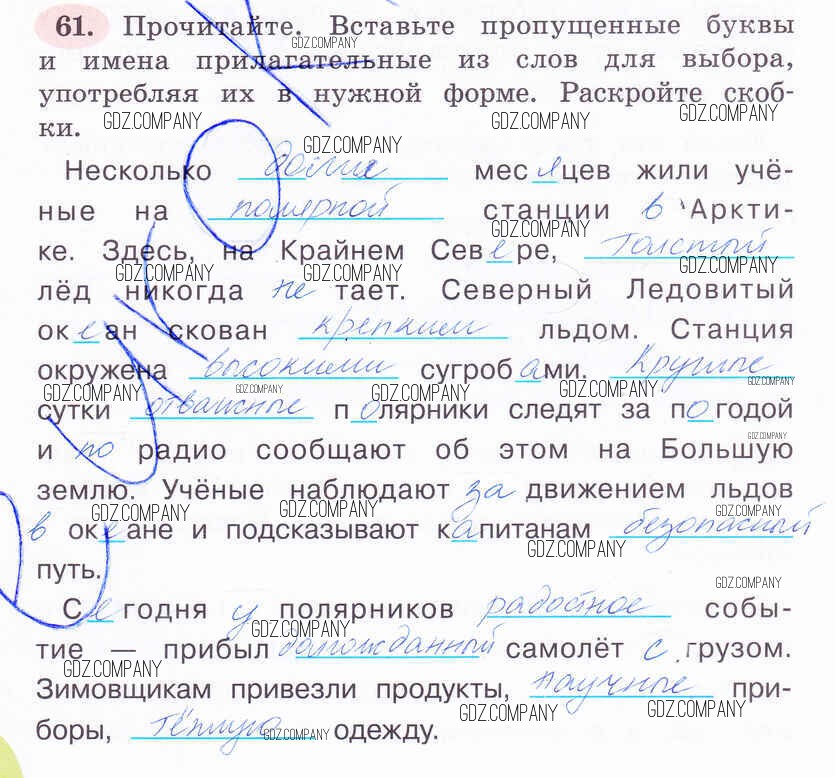 61. Прочитайте. Вставьте пропущенные буквы
GDZ.COMPANY
и имена прилагательные из слов для выбора,
употребляя их в нужной форме. Раскройте скоб-
GDZ.COMPANY GDZ.COMPANY GDZ.COMPANY
ки.
GDZ.COMPANY
Несколько долгих месяцев жили учё-
ные на полярной станции в Аркти-
GDZ.COMPANY
ке. Здесь, на Крайнем Севере, толстый
GDZ.COMPANY GDZ.COMPANY GDZ.COMPANY
лёд никогда не тает. Северный Ледовитый
океан скован крепким льдом. Станция
окружена высокими сугробами. Круглые
GDZ.COMPANY GDZ.COMPANY GDZ.COMPANY GDZ.COMPANY
сутки отважные полярники следят за погодой
GDZ.COMPANY
и по радио сообщают об этом на Большую
землю. Учёные наблюдают за движением льдов
GDZ.COMPANY GDZ.COMPANY GDZ.COMPANY
в океане и подсказывают капитанам безопасный
GDZ.COMPANY
путь.
GDZ.COMPANY
Сегодня у полярников радостное собы-
GDZ.COMPANY
тие — прибыл долгожданный самолёт с грузом.
GDZ.COMPANY
Зимовщикам привезли продукты, научные при-
GDZ.COMPANY GDZ.COMPANY
боры, тёплую одежду.
GDZ.COMPANY